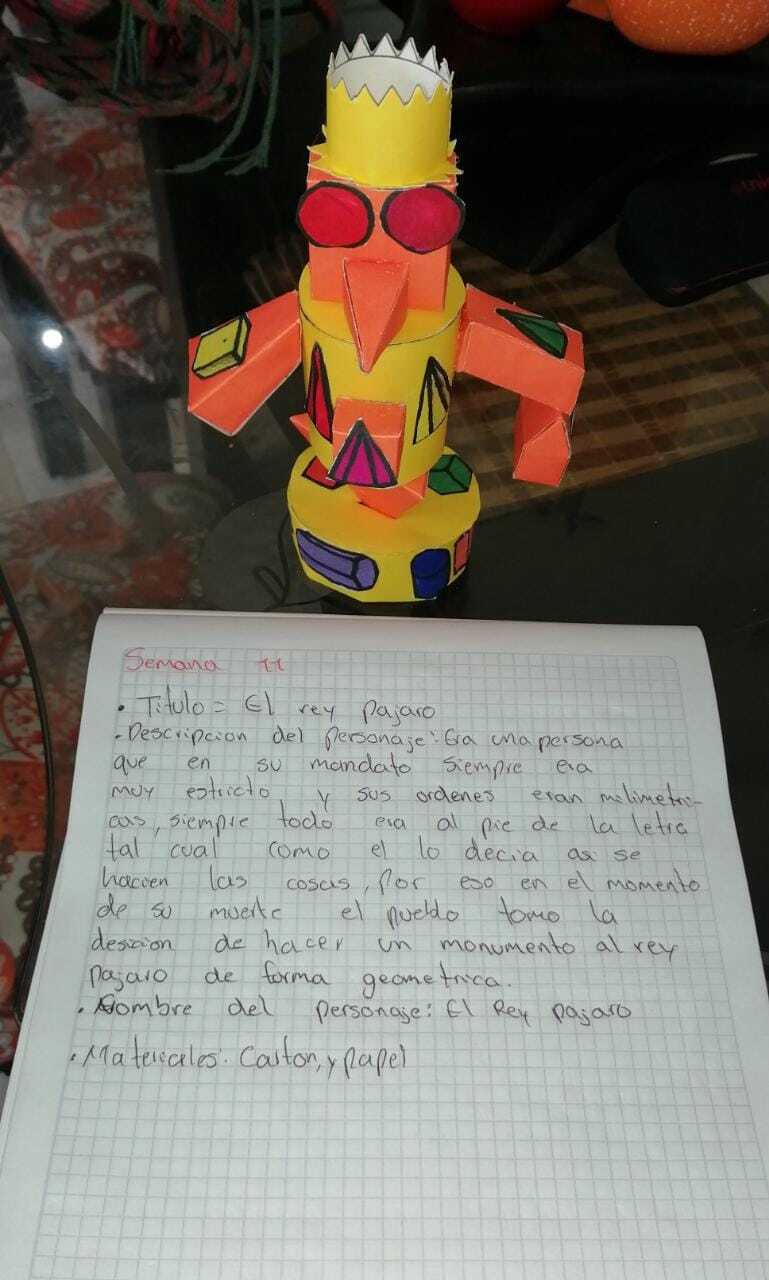 Semana 11
• Titulo = El rey pajaro
• Descripcion del personaje: Era una persona
que en su mandato siempre era
muy estricto y sus ordenes eran milimetri-
cas, siempre todo era al pie de la letra
tal cual como el lo decia asi se
hacien las cosas, por eso en el momento
de su muerte el pueblo tomo la
desicion de hacer un monumento al rey
pajaro de forma geometrica.
• Nombre del personaje: El Rey pajaro
• Materiales: Carton, y papel